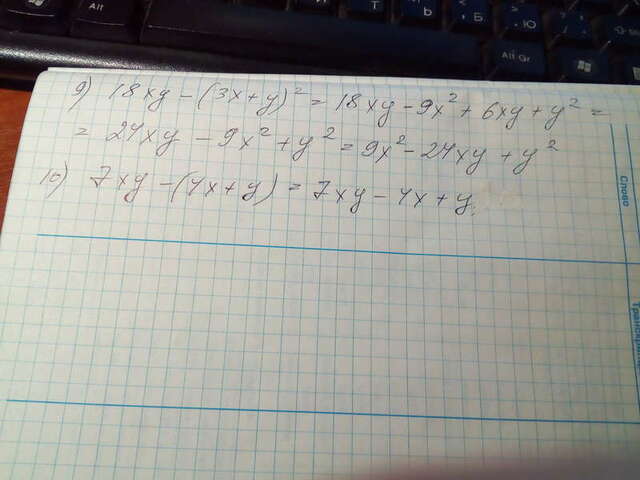 Alt
Ь
Б
Ю
Alt Gr
9) 18xy - (3x + y)² = 18xy - 9x² + 6xy + y² =
= 24xy - 9x² + y² = 9x² - 24xy + y²
10) 7xy - (4x + y) = 7xy - 4x + y;
Слово